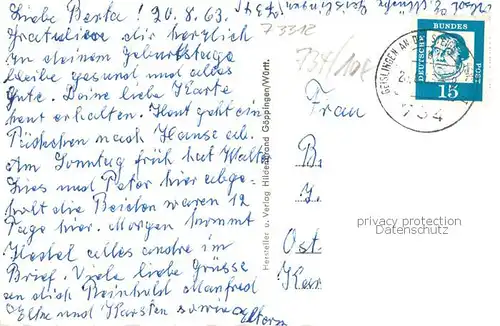 Liebe Berta! 20. 8. 63.
Gratuliere dir herzlich
zu deinem Geburtstage
bleibe gesund und alles
Gute. Deine liebe Karte
heut erhalten. Heut geht ein
nach Hause ab.
Am Sonntag früh hat Walter
und Peter hier abge-
holt die Beiden waren 12
Tage hier. Morgen kommt
alles andre im
Brief. Viele liebe Grüsse
an dich Reinhold Manfred
Elke und Karsten sowie Eltern
7 3312
734/108
Hersteller u. Verlag Hildenbrand Göppingen/Württ.
DEUTSCHE
BUNDES
POST
15
GEISLINGEN AN
734
Frau
B.
Ost.
privacy protection
Datenschutz